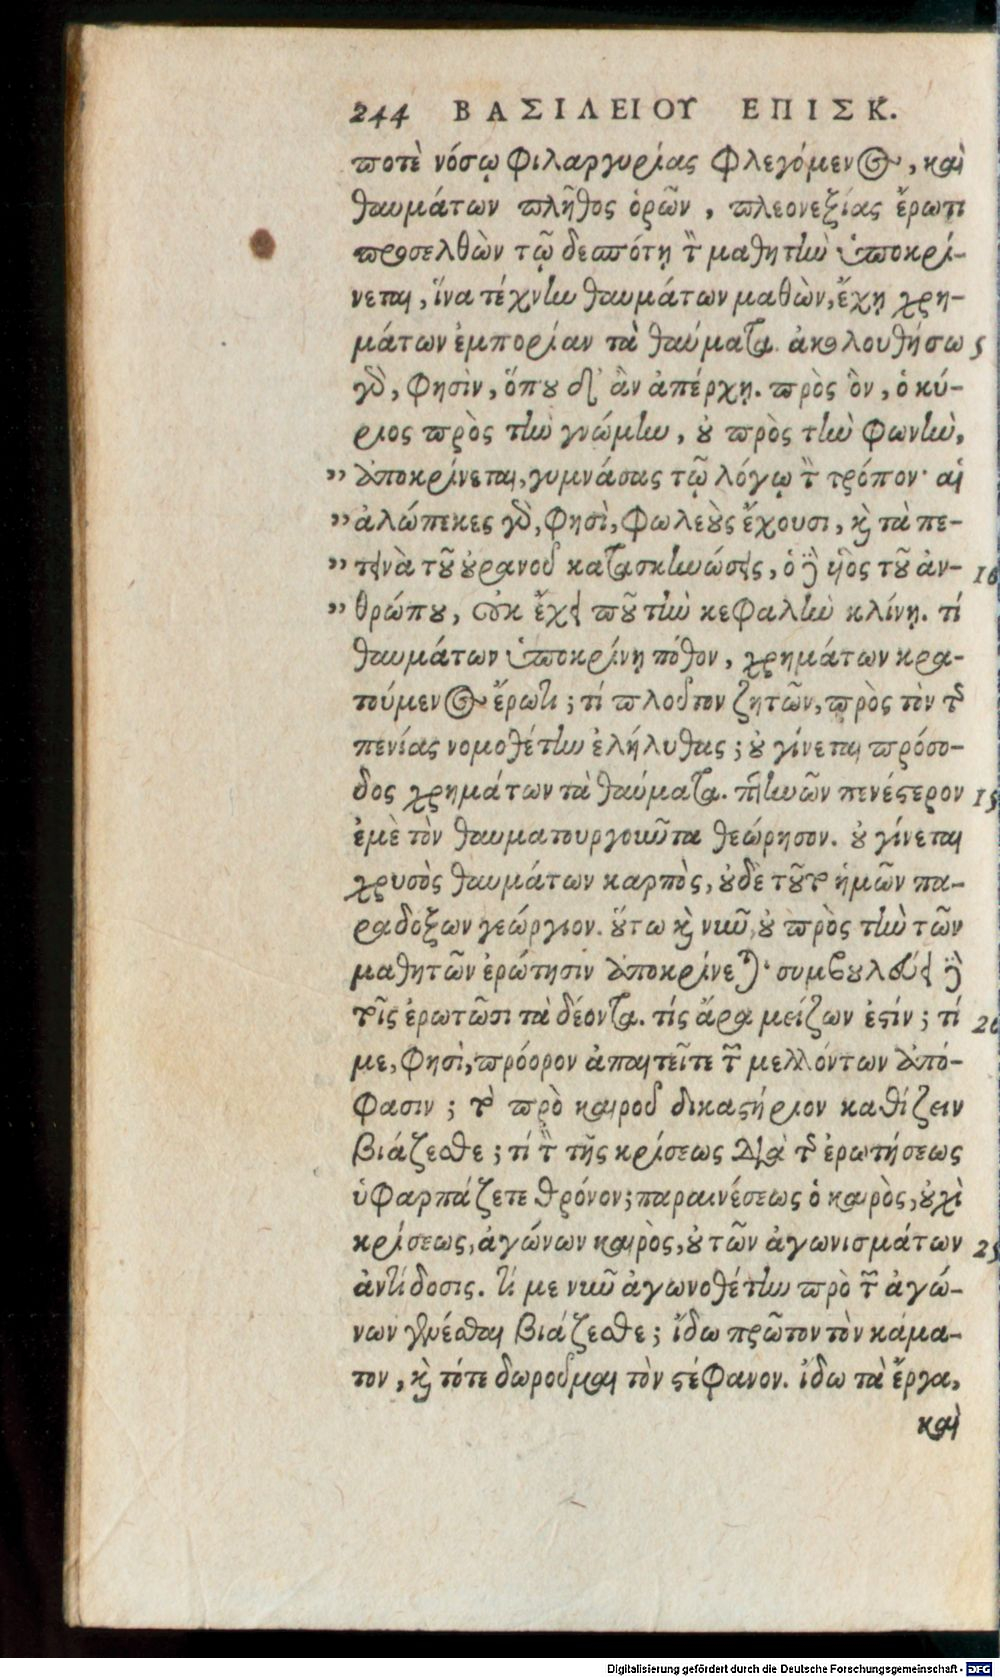 244 ΒΑΣΙΛΕΙΟΥ ΕΠΙΣΚ.
ποτὲ νόσῳ φιλαργυρίας φλεγόμενος, καὶ
θαυμάτων πλῆθος ὁρῶν, πλεονεξίας ἔρωτι
προσελθὼν τῷ δεσπότῃ τὸν μαθητὴν ὑποκρί-
νεται, ἵνα τέχνην θαυμάτων μαθὼν, ἔχῃ χρη-
μάτων ἐμπορίαν τὰ θαύματα. ἀκολουθήσω 5
γὸ, φησὶν, ὅπου δ' ἂν ἀπέρχῃ. πρὸς ὃν, ὁ κύ-
ριος πρὸς τὴν γνώμην, οὐ πρὸς τὴν φωνὴν,
" ἀποκρίνεται, γυμνάσας τῷ λόγῳ τὸν τρόπον· αἱ
" ἀλώπεκες γὸ, φησὶ, φωλεοὺς ἔχουσι, καὶ τὰ πε-
" τεινὰ τοῦ οὐρανοῦ κατασκηνώσεις, ὁ δὲ υἱὸς τοῦ ἀν- 10
" θρώπου, οὐκ ἔχει ποῦ τὴν κεφαλὴν κλίνῃ. τί
θαυμάτων ὑποκρίνῃ πόθον, χρημάτων κρα-
τούμενος ἔρωτι; τί πλοῦτον ζητῶν, πρὸς τὸν τῆς
πενίας νομοθέτην ἐλήλυθας; οὐ γίνεται πρόσο-
δος χρημάτων τὰ θαύματα. πτηνῶν πενέστερον 15
ἐμὲ τὸν θαυματουργοῦντα θεώρησον. οὐ γίνεται
χρυσὸς θαυμάτων καρπὸς, οὐδὲ τοῦτο ἡμῶν πα-
ραδόξων γεώργιον. οὕτω καὶ νῦν, οὐ πρὸς τὴν τῶν
μαθητῶν ἐρώτησιν ἀποκρίνεται· συμβουλεύει δὲ
τοῖς ἐρωτῶσι τὰ δέοντα. τίς ἄρα μείζων ἐστίν; τί 20
με, φησὶ, πρόορον ἀπαιτεῖτε τῶν μελλόντων ἀπό-
φασιν; τὸ πρὸ καιροῦ δικαστήριον καθίζειν
βιάζεσθε; τί τὸν τῆς κρίσεως διὰ τῆς ἐρωτήσεως
ὑφαρπάζετε θρόνον; παραινέσεως ὁ καιρὸς, οὐχὶ
κρίσεως, ἀγώνων καιρὸς, οὐ τῶν ἀγωνισμάτων 25
ἀντίδοσις. τί με νῦν ἀγωνοθέτην πρὸ τῶν ἀγώ-
νων γενέσθαι βιάζεσθε; ἴδω πρῶτον τὸν κάμα-
τον, καὶ τότε δωροῦμαι τὸν στέφανον. ἴδω τὰ ἔργα,
καὶ
Digitalisierung gefördert durch die Deutsche Forschungsgemeinschaft - DFG